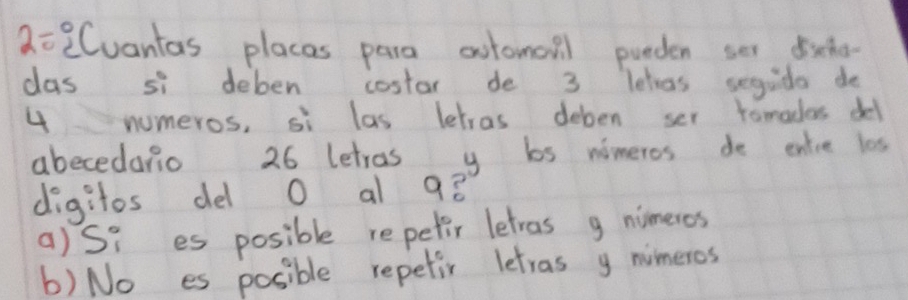 2= ¿Cuantas placas para automovil pueden ser
das si deben costar de 3 letras seguido de
4 numeros, si las letras deben ser tomadas del
abecedario 26 letras y los números de entre los
digitos del 0 al 9?
a) Si es posible repetir letras y números
b) No es posible repetir letras y números